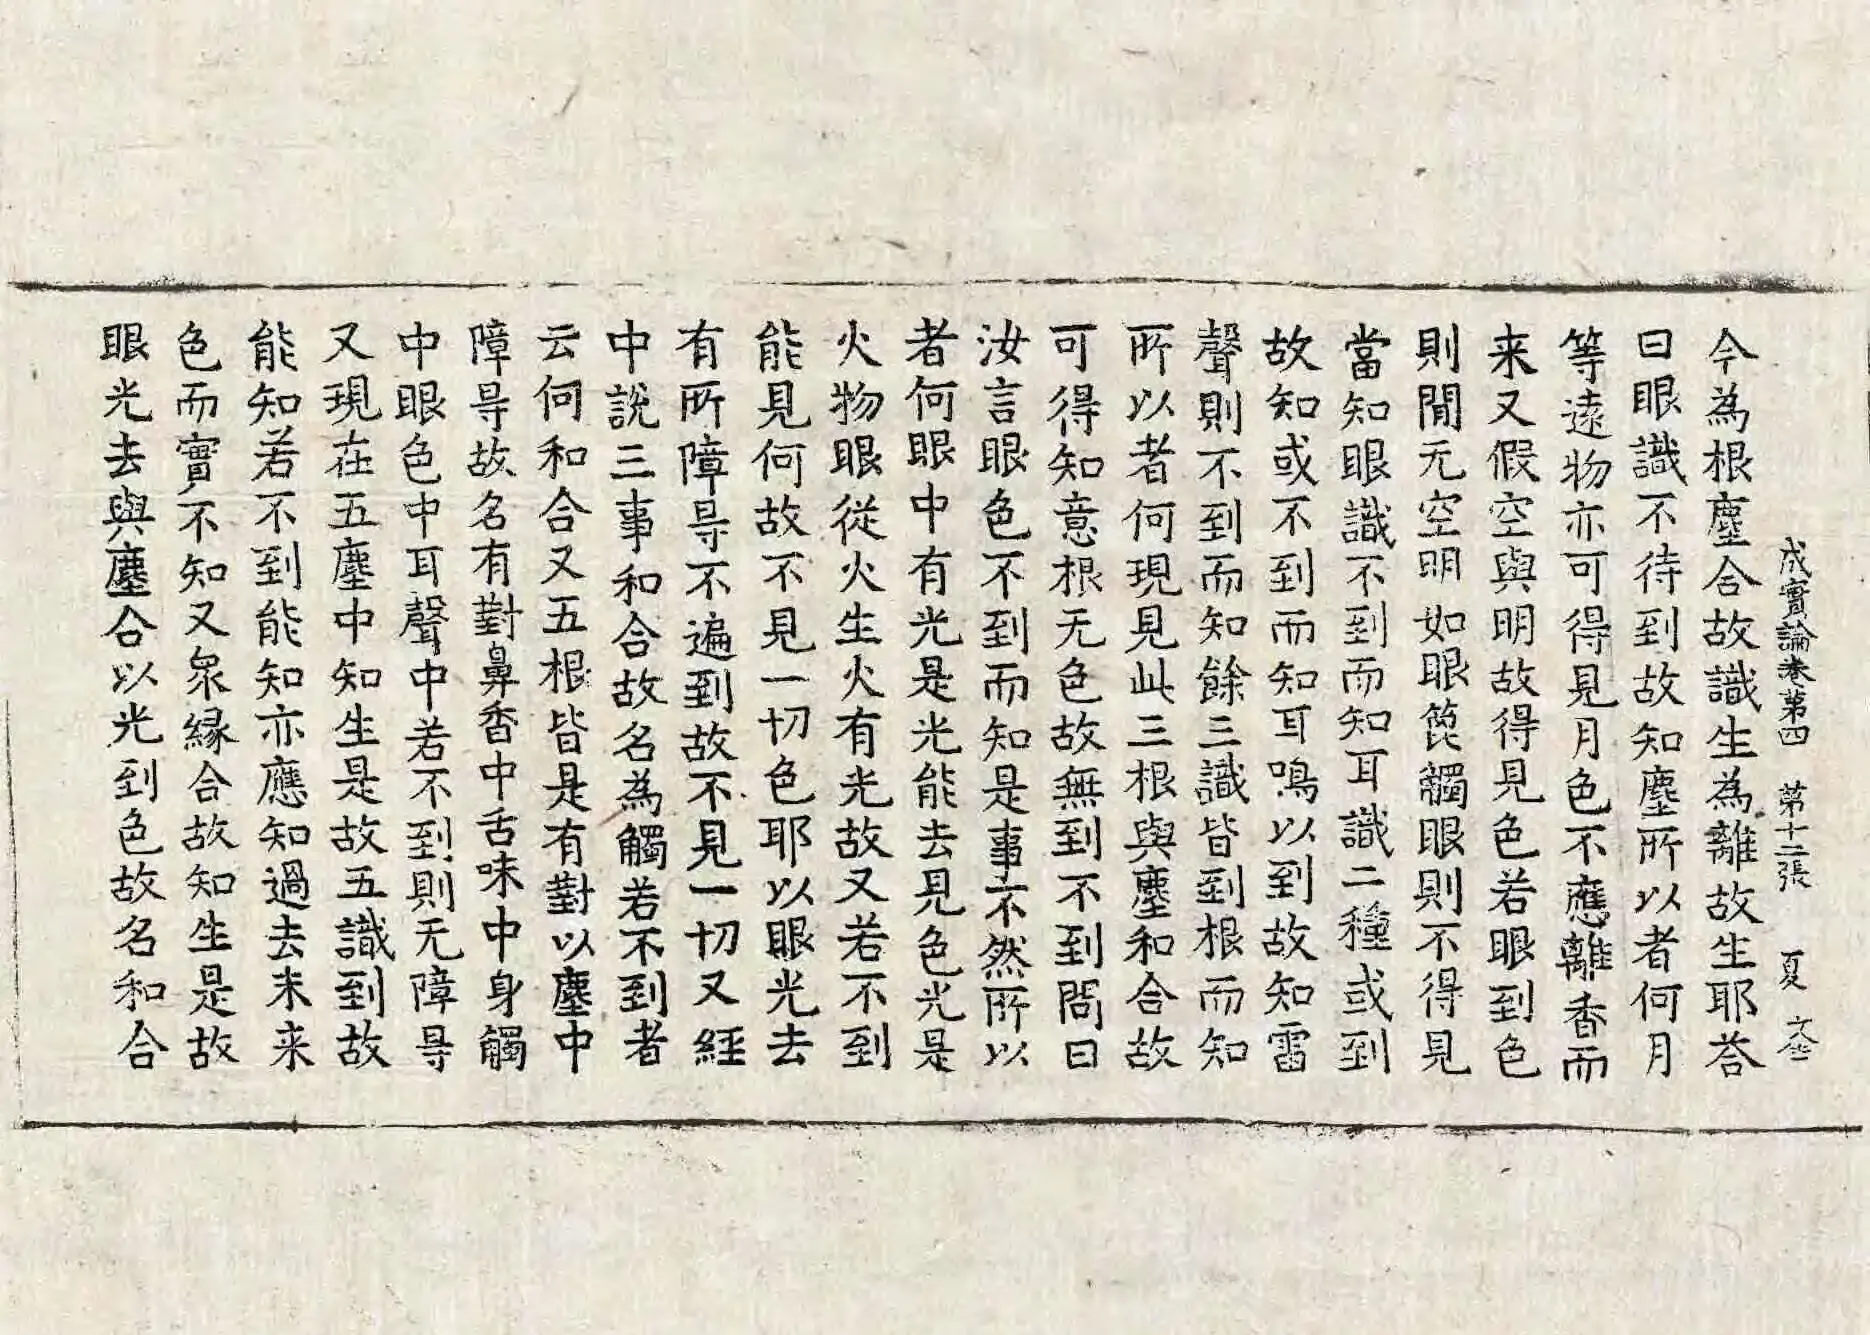 成實論卷第四 第十二張 夏
今為根塵合故識生為離故生耶荅
曰眼識不待到故知塵所以者何月
等遠物亦可得見月色不應離香而
来又假空與明故得見色若眼到色
則閒无空明如眼篦觸眼則不得見
當知眼識不到而知耳識二種或到
故知或不到而知耳鳴以到故知雷
聲則不到而知餘三識皆到根而知
所以者何現見此三根與塵和合故
可得知意根无色故無到不到問曰
汝言眼色不到而知是事不然所以
者何眼中有光是光能去見色光是
火物眼從火生火有光故又若不到
能見何故不見一切色耶以眼光去
有所障㝵不遍到故不見一切又經
中說三事和合故名為觸若不到者
云何和合又五根皆是有對以塵中
障㝵故名有對鼻香中舌味中身觸
中眼色中耳聲中若不到則无障㝵
又現在五塵中知生是故五識到故
能知若不到能知亦應知過去未来
色而實不知又眾緣合故知生是故
眼光去與塵合以光到色故名和合